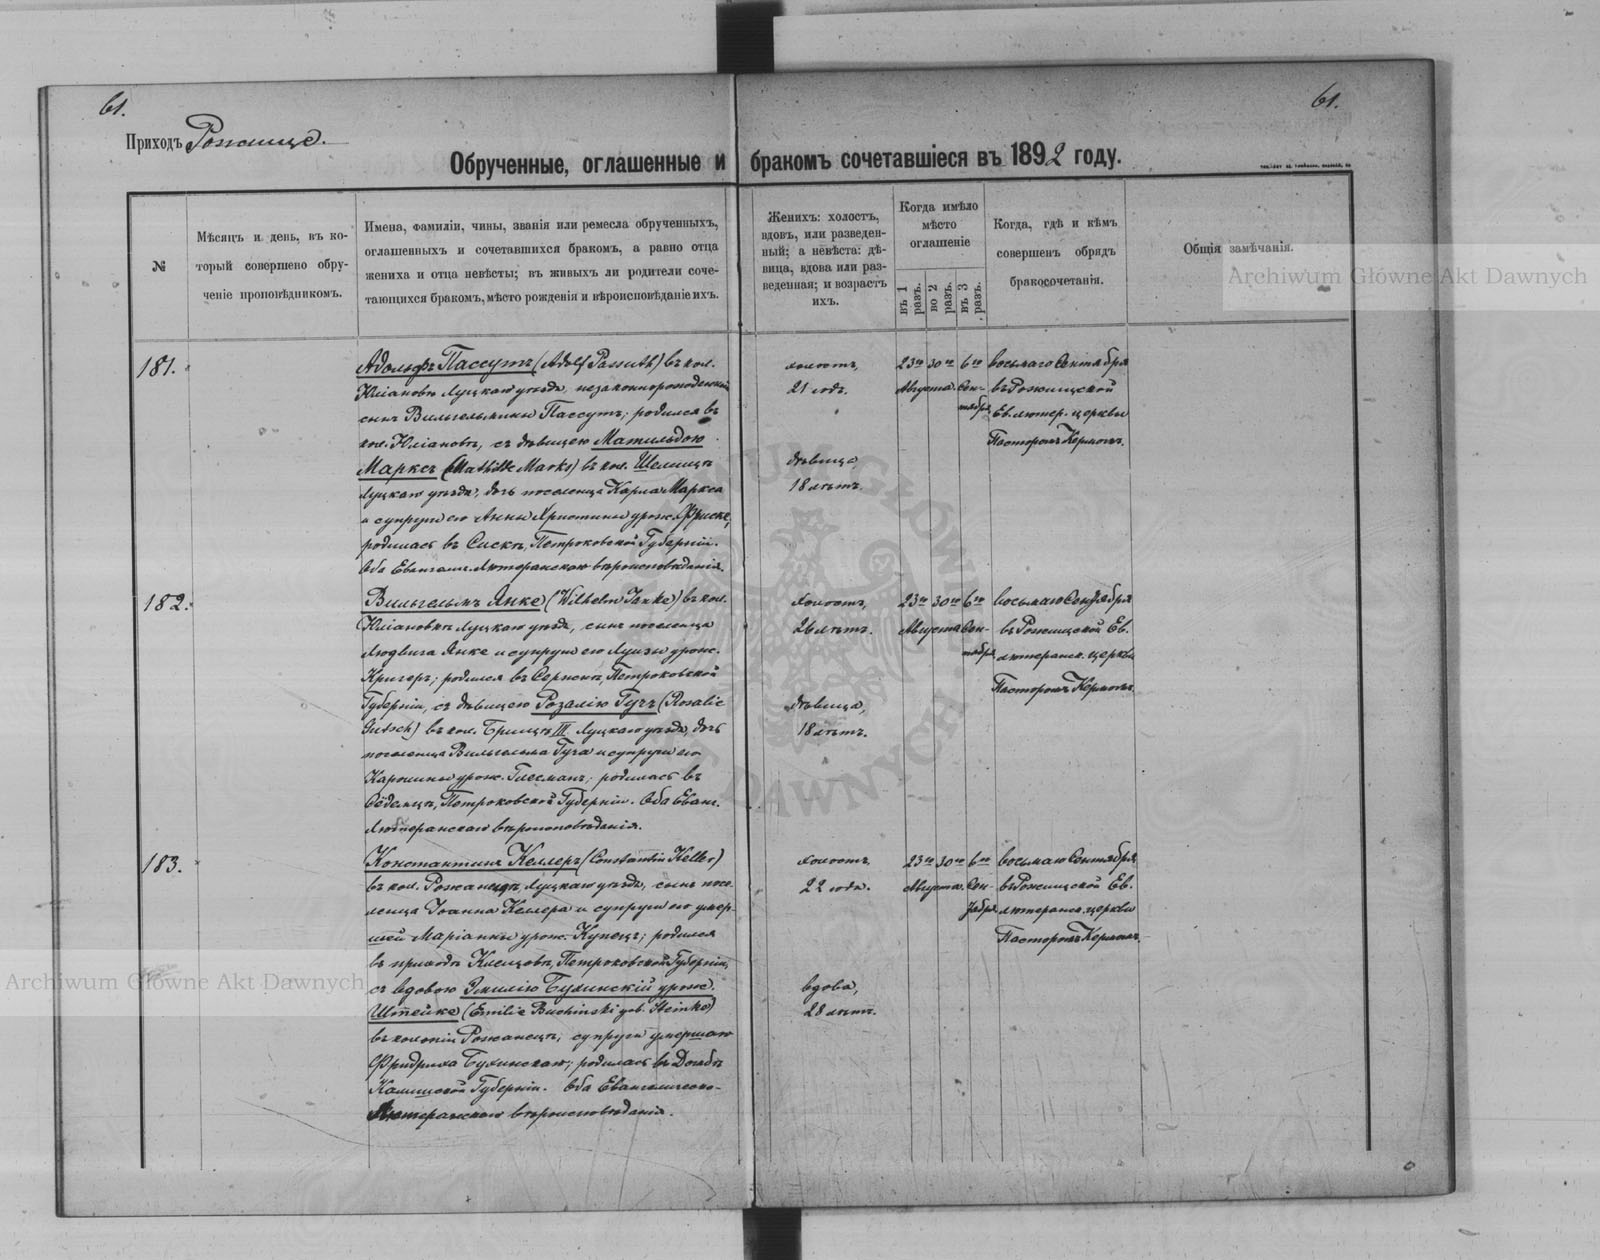 61.
61.
Приходъ Рожище.
Обрученные, оглашенные и бракомъ сочетавшіеся въ 1892 году.
№
Мѣсяцъ и день, въ ко-
торый совершено обру-
ченіе проповѣдникомъ.
Имена, фамиліи, чины, званія или ремесла обрученныхъ,
оглашенныхъ и сочетавшихся бракомъ, а равно отца
жениха и отца невѣсты; въ живыхъ ли родители соче-
тающихся бракомъ, мѣсто рожденія и вѣроисповѣданіе ихъ.
Женихъ: холостъ,
вдовъ, или разведен-
ный; а невѣста: дѣ-
вица, вдова или раз-
веденная; и возрастъ
ихъ.
Когда имѣло
мѣсто
оглашеніе
въ 1 разъ.
во 2 разъ.
въ 3 разъ.
Когда, гдѣ и кѣмъ
совершенъ обрядъ
бракосочетанія.
Общія замѣчанія.
Archiwum Główne Akt Dawnych
181.
Адольфъ Пассутъ (Adolf Passuth) въ кол.
Юліановкѣ Луцкаго уѣзда, незаконнорожденный
сынъ Вильгельмины Пассутъ; родился въ
кол. Юліановкѣ, съ дѣвицею Матильдою
Марксъ (Mathilde Marks) въ кол.
Луцкаго уѣзда, дочь поселенца Карла Маркса
и супруги его Анны Христины урож. Фриске,
родилась въ Петроковской Губерніи.
Оба Евангелич. Лютеранскаго вѣроисповѣданія.
холостъ,
21 годъ.
дѣвица,
18 лѣтъ.
23го 30го 6го
Августа. Сен-
тября
восьмаго Сентября
въ Рожищской
Ев. лютер. церкви
Пасторомъ Керномъ.
182.
Вильгельмъ Янке (Wilhelm Janke) въ кол.
Юліановкѣ Луцкаго уѣзда, сынъ поселенца
Людвига Янке и супруги его Луизы урож.
Кригеръ; родился въ Петроковской
Губерніи, съ дѣвицею Розалію Гучъ (Rosalie
Gutsch) въ кол. III Луцкаго уѣзда, дочь
поселенца Вильгельма Гуча и супруги его
Каролины урож. родилась въ
Петроковской Губерніи. Оба Еванг.
Лютеранскаго вѣроисповѣданія.
холостъ,
26 лѣтъ.
дѣвица,
18 лѣтъ.
23го 30го 6го
Августа Сен-
тября
восьмаго Сентября
въ Рожищской Ев.
лютеранск. церкви
Пасторомъ Керномъ.
183.
Константинъ Келлеръ (Constantin Keller)
въ кол. Рожанецъ, Луцкаго уѣзда, сынъ посе-
ленца Іоанна Келлера и супруги его умер-
шей Маріанны урож. Купецъ; родился
въ приходѣ Петроковской Губерніи,
съ вдовою Эмилію Бухинскій урож.
Штейнке (Emilie Buchinski geb. Steinke)
въ колоніи Рожанецъ, супруги умершаго
Фридриха Бухинскаго; родилась въ Домбѣ
Калишской Губерніи. Оба Евангелическо-
Лютеранскаго вѣроисповѣданія.
холостъ
22 года.
вдова,
28 лѣтъ.
23го 30го 6го
Августа. Сен-
тября
восьмаго Сентября
въ Рожищской Ев.
лютеранск. церкви
Пасторомъ Керномъ.
Archiwum Główne Akt Dawnych